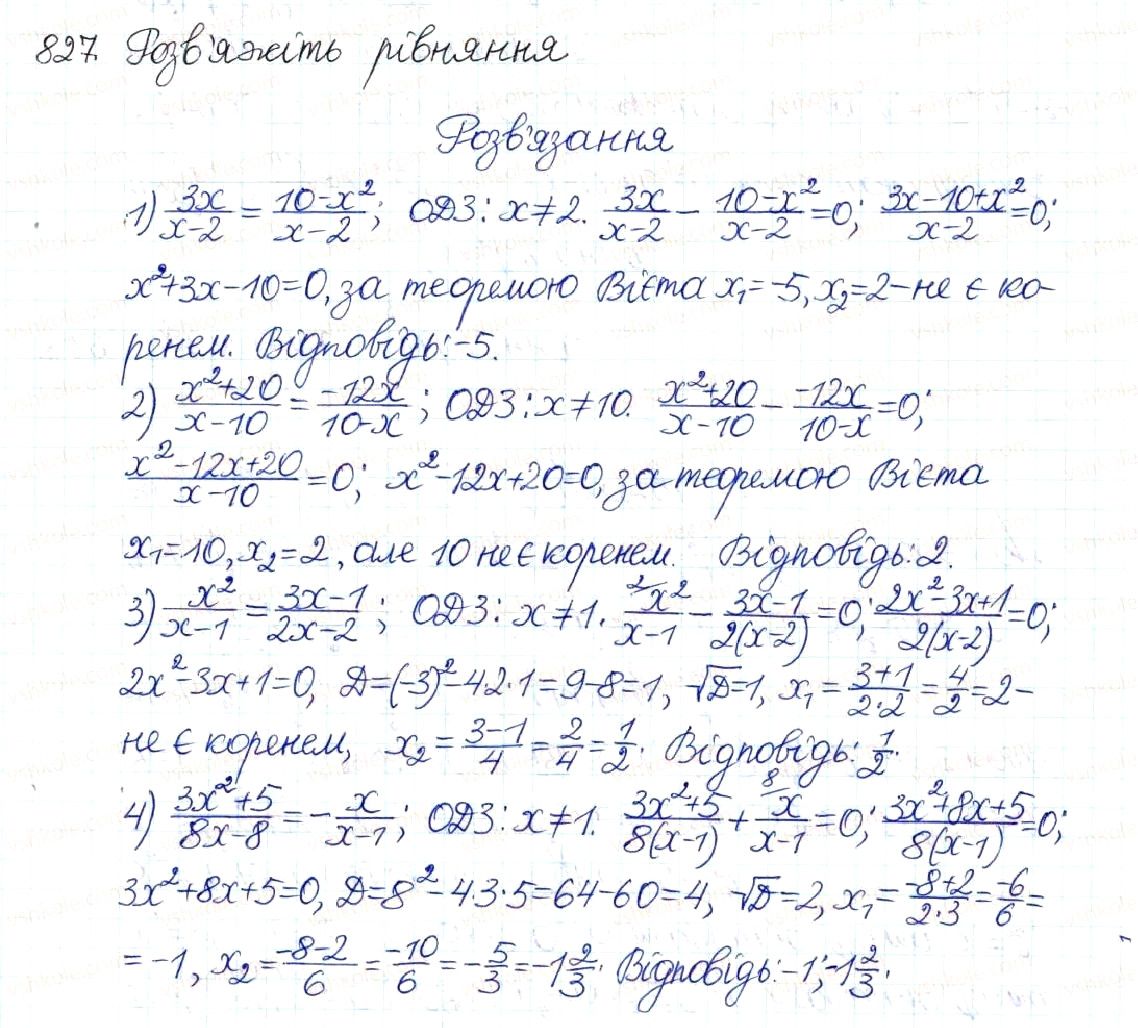 827. Розв'яжіть рівняння
Розв'язання
1) 3x/(x-2) = (10-x²)/(x-2); ОДЗ: x≠2. 3x/(x-2) - (10-x²)/(x-2) =0; (3x-10+x²)/(x-2) =0;
x²+3x-10=0, за теоремою Вієта x₁=-5, x₂=2-не є ко-
ренем. Відповідь:-5.
2) (x²+20)/(x-10) = (-12x)/(10-x); ОДЗ: x≠10. (x²+20)/(x-10) - (-12x)/(10-x) =0;
(x²-12x+20)/(x-10) =0; x²-12x+20=0, за теоремою Вієта
x₁=10, x₂=2, але 10 не є коренем. Відповідь: 2.
3) x²/(x-1) = (3x-1)/(2x-2); ОДЗ: x≠1. ²⁄x²/(x-1) - (3x-1)/(2(x-2)) =0; (2x²-3x+1)/(2(x-2)) =0;
2x²-3x+1=0, D=(-3)²-4·2·1=9-8=1, √D=1, x₁ = (3+1)/(2·2) = 4/2 =2-
не є коренем, x₂ = (3-1)/4 = 2/4 = 1/2. Відповідь: 1/2.
4) (3x²+5)/(8x-8) = - x/(x-1); ОДЗ: x≠1. (3x²+5)/(8(x-1)) + ⁸⁄x/(x-1) =0; (3x²+8x+5)/(8(x-1)) =0;
3x²+8x+5=0, D=8²-4·3·5=64-60=4, √D=2, x₁ = (-8+2)/(2·3) = -6/6 =
= -1, x₂ = (-8-2)/6 = -10/6 = -5/3 = -1 2/3. Відповідь:-1;-1 2/3.